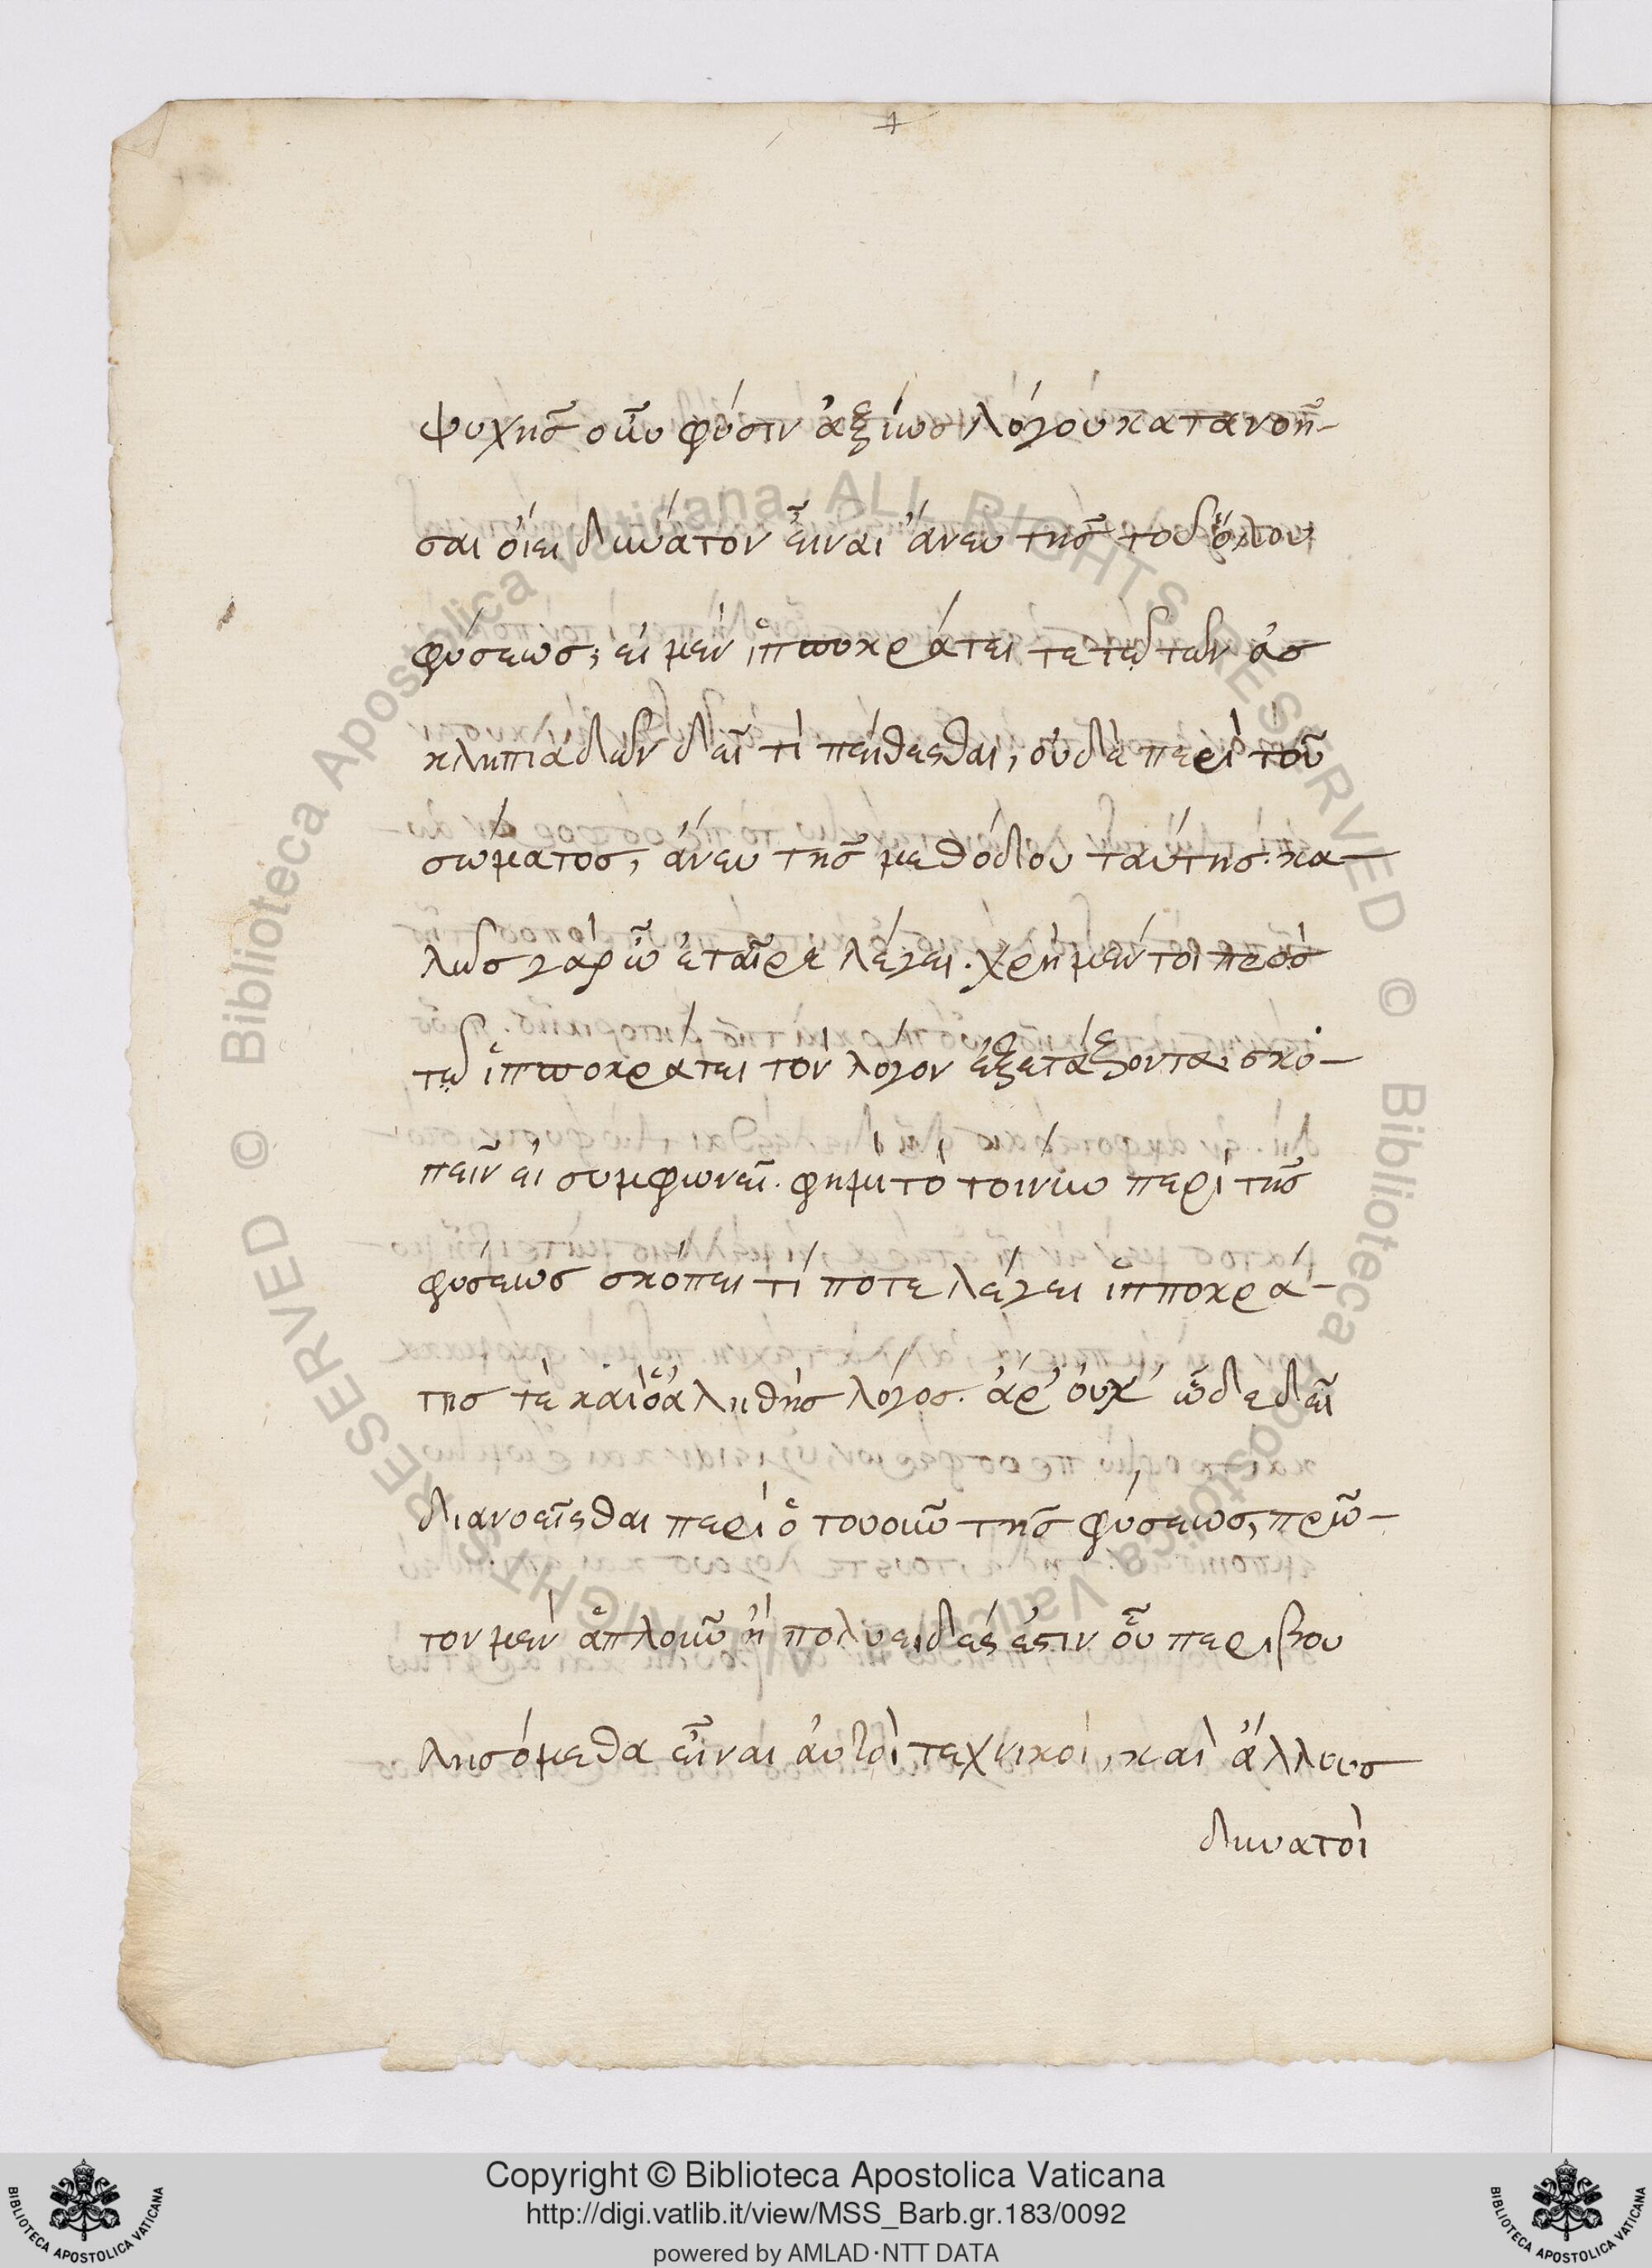 ψυχῆς οὖν φύσιν ἀξίως λόγου κατανοῆ-
σαι οἴει δυνατὸν εἶναι ἄνευ τῆς τοῦ ὅλου
φύσεως; εἰ μὲν ἱπποκράτει τε τῷ τῶν ἀσ
κληπιάδων δεῖ τί πείθεσθαι, οὐδὲ περὶ τοῦ
σώματος, ἄνευ τῆς μεθόδου ταύτης. κα-
λῶς γὰρ ὦ ἑταῖρε λέγει. χρὴ μέντοι πρὸς
τῷ ἱπποκράτει τὸν λόγον ἐξετάζοντα, σκο-
πεῖν εἰ συμφωνεῖ. φημί τὸ τοίνυν περὶ τῆς
φύσεως σκόπει τί ποτε λέγει ἱπποκρά-
της τὲ καὶ ὁ ἀληθὴς λόγος. ἆρ' οὐχ' ὧδε δεῖ
διανοεῖσθαι περὶ ὁτουοῦν τῆς φύσεως, πρῶ-
τον μὲν ἁπλοῦν ἢ πολυειδές ἐστιν οὗ περὶ βου
λησόμεθα εἶναι αὐτοὶ τεχνικοὶ, καὶ ἄλλους
δυνατοὶ
Copyright © Biblioteca Apostolica Vaticana
http://digi.vatlib.it/view/MSS_Barb.gr.183/0092
powered by AMLAD·NTT DATA
BIBLIOTECA APOSTOLICA VATICANA
BIBLIOTECA APOSTOLICA VATICANA